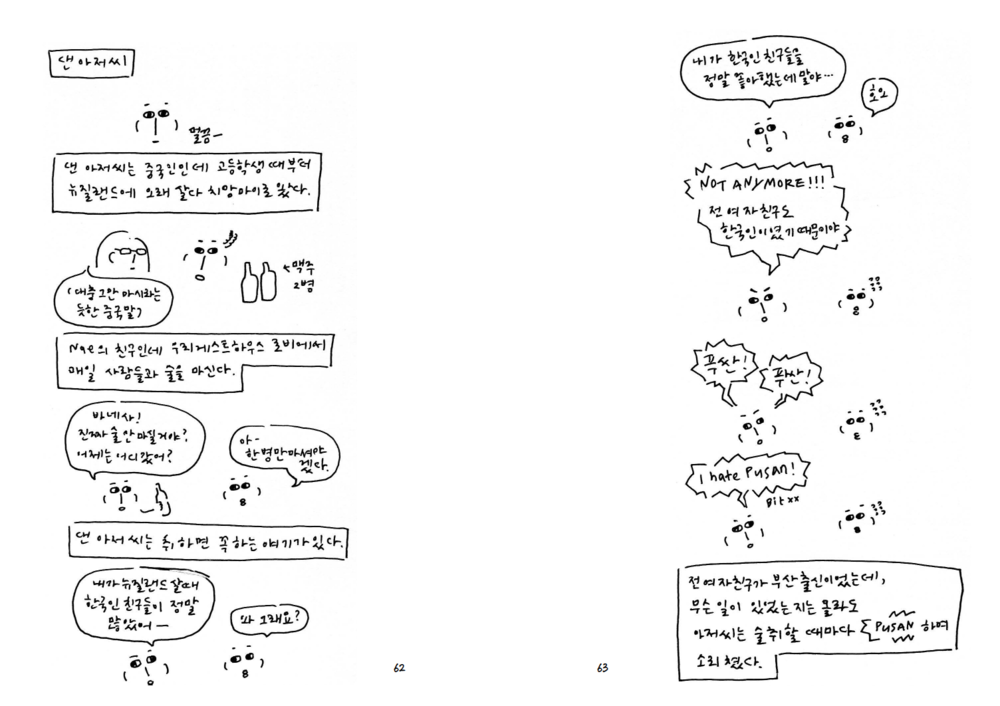 댄 아저씨
멀끔-
댄 아저씨는 중국인인데 고등학생때부터
뉴질랜드에 오래 살다 치앙마이로 왔다.
(대충 그만 마시라는
듯한 중국말)
←맥주
2병
Nae의 친구인데 우리게스트하우스 로비에서
매일 사람들과 술을 마신다.
바네사!
진짜 술 안 마실거야?
어제는 어디갔어?
아-
한병만마셔야
겠다.
댄 아저씨는 취하면 꼭 하는 얘기가 있다.
내가 뉴질랜드 살때
한국인 친구들이 정말
많았어-
와 그래요?
62
내가 한국인 친구들을
정말 좋아했는데 말야…
호오
NOT ANYMORE!!!
전 여자친구도
한국인이었기 때문이야
푸싼!
푸산!
I hate Pusan!
Bitxx
전 여자친구가 부산출신이었는데,
무슨 일이 있었는지는 몰라도
아저씨는 술취할 때마다 PUSAN 하며
소리쳤다.
63